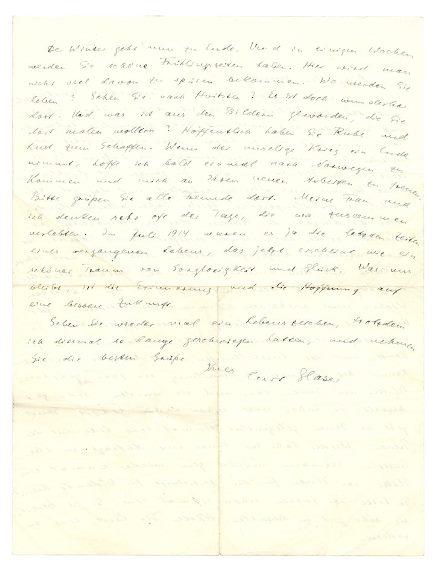 Der Winter geht nun zu Ende. Und in einigen Wochen
werden Sie schöne Frühlingszeiten haben. Hier wird man
nicht viel davon zu spüren bekommen. Wo werden Sie
leben? Gehen Sie nach Hvitsten? Es ist doch wunderbar
dort. Und was ist aus den Bildern geworden, die Sie
dort malen wollten? Hoffentlich haben Sie Ruhe und
Lust zum Schaffen. Wenn der unselige Krieg ein Ende
nimmt, hoffe ich bald einmal nach Norwegen zu
kommen und mich an Ihren neuen Arbeiten zu freuen.
Bitte grüßen Sie alle Freunde dort. Meine Frau und
ich denken sehr oft der Tage, die wir zusammen
verlebten. Im Juli 1914 waren es ja die letzten Zeiten
eines vergangenen Lebens, das jetzt erscheint wie ein
schöner Traum von Sorglosigkeit und Glück. Was uns
bleibt, ist die Erinnerung und die Hoffnung auf
eine bessere Zukunft.
Geben Sie wieder mal ein Lebenszeichen, trotzdem
ich diesmal so lange geschwiegen habe, und nehmen
Sie die besten Grüße
Ihres
Curt Glaser